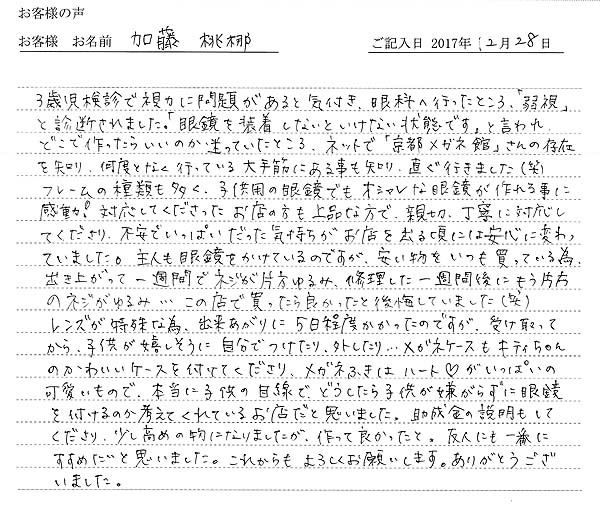 お客様の声
お客様 お名前 加藤 桃梛 ご記入日 2017年 12月 28日
3歳児検診で視力に問題があると気付き、眼科へ行ったところ、「弱視」
と診断されました。「眼鏡を装着しないといけない状態です。」と言われ、
どこで作ったらいいのか迷っていたところ、ネットで「京都メガネ館」さんの存在
を知り、何度となく行っている大手筋にある事も知り、直ぐ行きました(笑)
フレームの種類も多く、子供用の眼鏡でもオシャレな眼鏡が作れる事に
感動!対応してくださったお店の方も上品な方で、親切、丁寧に対応し
てくださり、不安でいっぱいだった気持ちがお店を出る頃には安心に変わっ
ていました。主人も眼鏡をかけているのですが、安い物をいつも買っている為、
出き上がって一週間でネジが片方ゆるみ、修理した一週間後にもう片方
のネジがゆるみ…この店で買ったら良かったと後悔していました(笑)
レンズが特殊な為、出来あがりに5日程度かかったのですが、受け取って
から、子供が嬉しそうに自分でつけたり、外したり…メガネケースもキティちゃん
のかわいいケースを付けてくださり、メガネふきはハート♡がいっぱいの
可愛いもので、本当に子供の目線で、どうしたら子供が嫌がらずに眼鏡
を付けるのか考えてくれているお店だと思いました。助成金の説明もして
くださり、少し高めの物になりましたが、作って良かったと。友人にも一番に
すすめたいと思いました。これからもよろしくお願いします。ありがとうござ
いました。